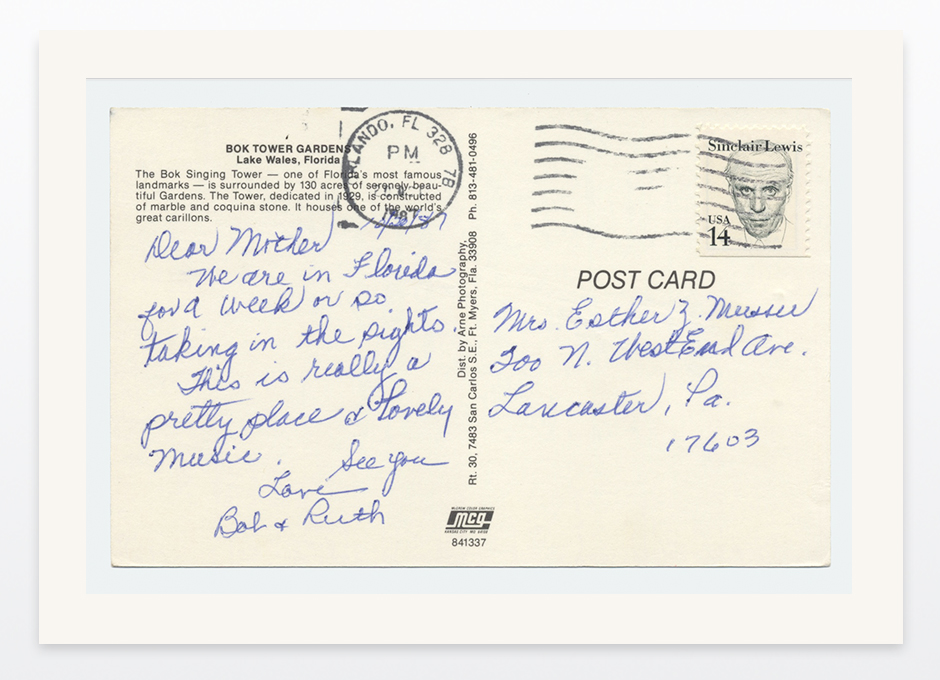 BOK TOWER GARDENS
Lake Wales, Florida
The Bok Singing Tower — one of Florida's most famous
landmarks — is surrounded by 130 acres of serenely beau-
tiful Gardens. The Tower, dedicated in 1929, is constructed
of marble and coquina stone. It houses one of the world's
great carillons.
ORLANDO, FL 328 7B
PM
Dear Mother
We are in Florida
for a week or so
taking in the sights.
This is really a
pretty place & lovely
music.
See you
Love
Bob & Ruth
Dist. by Arne Photography,
Rt. 30, 7483 San Carlos S.E., Ft. Myers, Fla. 33908 Ph. 813-481-0496
mcg
841337
Sinclair Lewis
USA
14
POST CARD
Mrs. Esther Z. Musser
200 N. West End Ave.
Lancaster, Pa.
17603